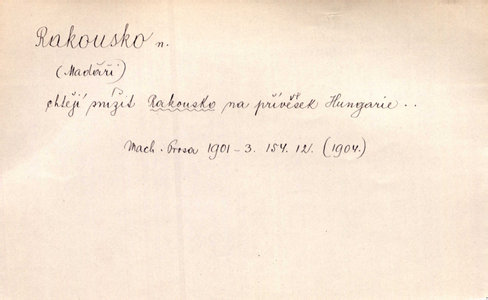 Rakousko n.
(Maďaři)
chtějí snížit Rakousko na přívěšek Hungarie ..
Mach. Prosa 1901-3. 154. 12. (1904.)